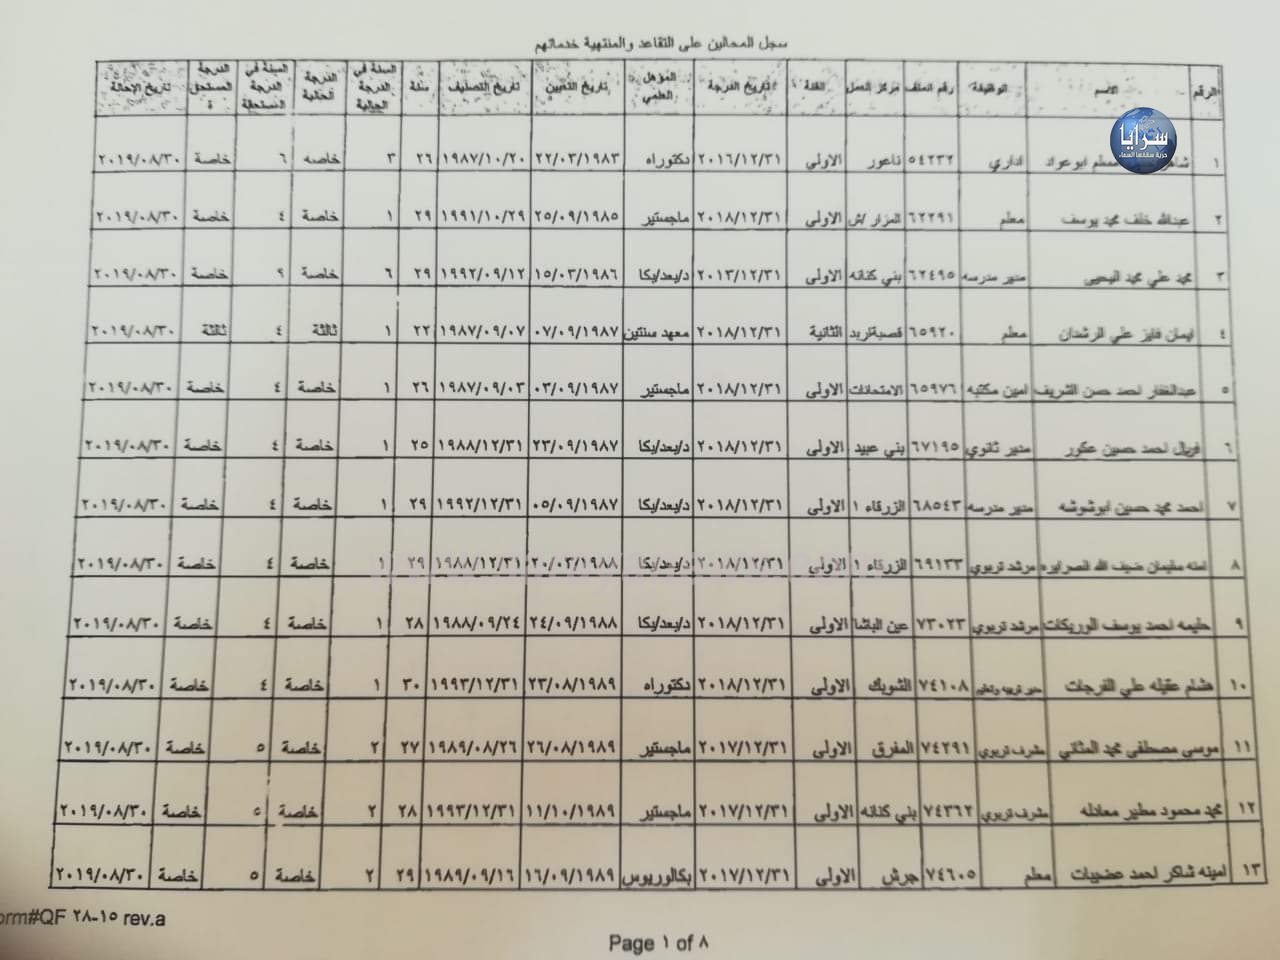 سجل المحالين على التقاعد والمنتهية خدماتهم
الرقم الاسم الوظيفة رقم الملف مركز العمل الفئة تاريخ الدرجة المؤهل العلمي تاريخ التعيين تاريخ التصنيف سنة السنة في الدرجة الحالية الدرجة الحالية السنة في الدرجة المستحقة الدرجة المستحقة تاريخ الإحالة
سرايا
حرية سقفها السماء
١ ابوعواد اداري ٥٤٢٣٢ ناعور الاولى ٢٠١٦/١٢/٣١ دكتوراه ٢٢/٠٣/١٩٨٣ ١٩٨٧/١٠/٢٠ ٢٦ ٣ خاصه ٦ خاصة ٢٠١٩/٠٨/٣٠
٢ عبدالله خلف محمد يوسف معلم ٦٢٢٩١ المزار /ش الاولى ٢٠١٨/١٢/٣١ ماجستير ٢٥/٠٩/١٩٨٥ ١٩٩١/١٠/٢٩ ٢٩ ١ خاصة ٤ خاصة ٢٠١٩/٠٨/٣٠
٣ محمد علي محمد اليحيى مدير مدرسه ٦٢٤٩٥ بني كنانه الاولى ٢٠١٣/١٢/٣١ د/بعد/بكا ١٥/٠٣/١٩٨٦ ١٩٩٢/٠٩/١٢ ٢٩ ٦ خاصة ٩ خاصة ٢٠١٩/٠٨/٣٠
٤ ايمان فايز علي الرشدان معلم ٦٥٩٢٠ قصبةاربد الثانية ٢٠١٨/١٢/٣١ معهد سنتين ٠٧/٠٩/١٩٨٧ ١٩٨٧/٠٩/٠٧ ٢٢ ١ ثالثة ٤ ثالثة ٢٠١٩/٠٨/٣٠
٥ عبدالغفار احمد حسن الشريف امين مكتبه ٦٥٩٧٦ الامتحانات الاولى ٢٠١٨/١٢/٣١ ماجستير ٠٣/٠٩/١٩٨٧ ١٩٨٧/٠٩/٠٣ ٢٦ ١ خاصة ٤ خاصة ٢٠١٩/٠٨/٣٠
٦ فريال احمد حسين عكور مدير ثانوي ٦٧١٩٥ بني عبيد الاولى ٢٠١٨/١٢/٣١ د/بعد/بكا ٢٣/٠٩/١٩٨٧ ١٩٨٨/١٢/٣١ ٢٥ ١ خاصة ٤ خاصة ٢٠١٩/٠٨/٣٠
٧ احمد محمد حسين ابوشوشه مدير مدرسه ٦٨٥٤٣ الزرقاء ١ الاولى ٢٠١٨/١٢/٣١ د/بعد/بكا ٠٥/٠٩/١٩٨٧ ١٩٩٢/١٢/٣١ ٢٩ ١ خاصة ٤ خاصة ٢٠١٩/٠٨/٣٠
٨ امنه سليمان ضيف الله الصرايره مرشد تربوي ٦٩١٣٣ الزرقاء ١ الاولى ٢٠١٨/١٢/٣١ د/بعد/بكا ٢٠/٠٣/١٩٨٨ ١٩٨٨/١٢/٣١ ٢٩ ١ خاصة ٤ خاصة ٢٠١٩/٠٨/٣٠
٩ حليمه احمد يوسف الوريكات مرشد تربوي ٧٣٠٢٣ عين الباشا الاولى ٢٠١٨/١٢/٣١ د/بعد/بكا ٢٤/٠٩/١٩٨٨ ١٩٨٨/٠٩/٢٤ ٢٨ ١ خاصة ٤ خاصة ٢٠١٩/٠٨/٣٠
١٠ هشام عقيله علي الفرجات مدير تربيه وتعليم ٧٤١٠٨ الشوبك الاولى ٢٠١٨/١٢/٣١ دكتوراه ٢٣/٠٨/١٩٨٩ ١٩٩٣/١٢/٣١ ٣٠ ١ خاصة ٤ خاصة ٢٠١٩/٠٨/٣٠
١١ موسى مصطفى محمد المثاني مشرف تربوي ٧٤٢٩١ المفرق الاولى ٢٠١٧/١٢/٣١ ماجستير ٢٦/٠٨/١٩٨٩ ١٩٨٩/٠٨/٢٦ ٢٧ ٢ خاصة ٥ خاصة ٢٠١٩/٠٨/٣٠
١٢ محمد محمود مطير معادله مشرف تربوي ٧٤٣٦٢ بني كنانه الاولى ٢٠١٧/١٢/٣١ ماجستير ١١/١٠/١٩٨٩ ١٩٩٣/١٢/٣١ ٢٨ ٢ خاصة ٥ خاصة ٢٠١٩/٠٨/٣٠
١٣ امينه شاكر احمد عضيبات معلم ٧٤٦٠٥ جرش الاولى ٢٠١٧/١٢/٣١ بكالوريوس ١٦/٠٩/١٩٨٩ ١٩٨٩/٠٩/١٦ ٢٩ ٢ خاصة ٥ خاصة ٢٠١٩/٠٨/٣٠
orm#QF ٢٨-١٥ rev.a
Page ١ of ٨